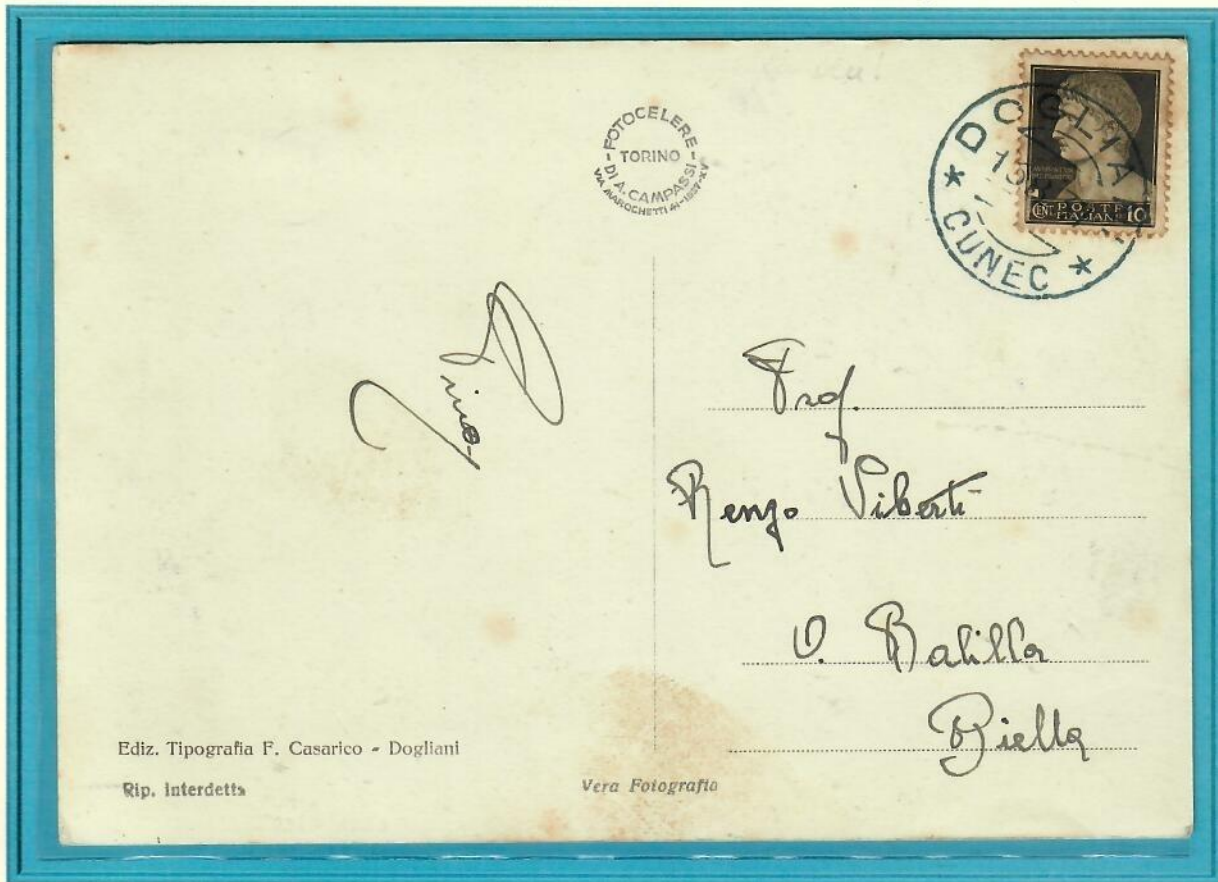 FOTOCELERE
TORINO
DI A. CAMPASSI
VIA MAROCHETTI 41-1937-XV
DOGLIA
CUNEC
CENT. POSTE ITALIANE 10
Prof.
Renzo Viberti
V. Balilla
Biella
Ediz. Tipografia F. Casarico - Dogliani
Rip. Interdetta
Vera Fotografia